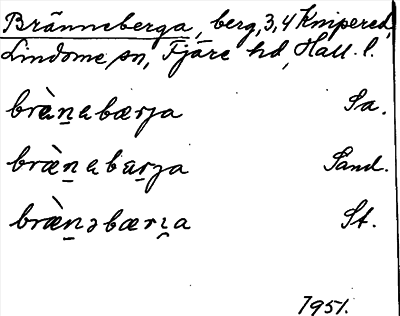 Bränneberga, berg, 3,4 Knipered,
Lindome sn, Fjäre hd, Hall. l.
bræ̀n̲abærja Sa.
bræ̀n̲abɛr̲ja Sand.
bræ̀n̲əbærı̯a St.
1951.